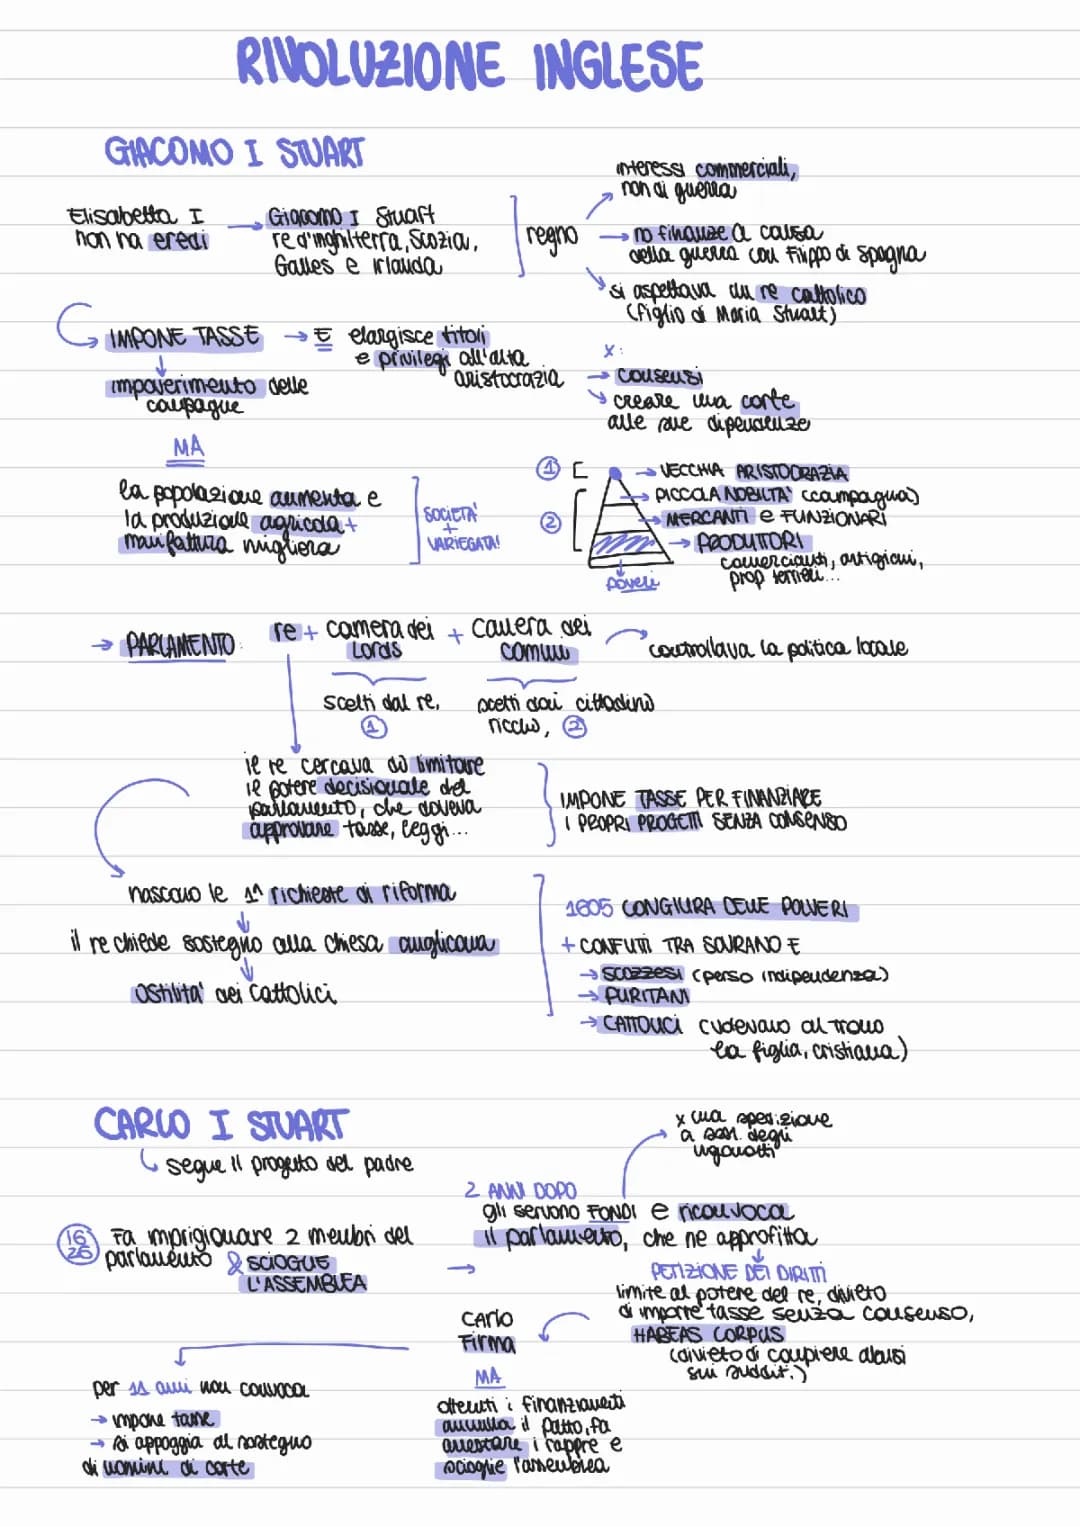 RIVOLUZIONE INGLESE
GIACOMO I STUART
Elisabetta I
non ha eredi
Giacomo I Stuart
re d'Inghilterra, Scozia,
Galles e Irlanda
regno
interessi commerciali,
non di guerra
no finanze a causa
della guerra con Filippo di Spagna
si aspettava un re cattolico
(figlio di Maria Stuart)
IMPONE TASSE
impoverimento delle
campagne
E elargisce titoli
e privilegi all'alta
aristocrazia
x:
consensi
creare una corte
alle sue dipendenze
MA
la popolazione aumenta e
la produzione agricola +
manifattura migliora
SOCIETA'
+
VARIEGATA!
1
2
VECCHIA ARISTOCRAZIA
PICCOLA NOBILTA' (campagna)
MERCANTI e FUNZIONARI
PRODUTTORI
commercianti, artigiani,
prop terrieri...
poveri
PARLAMENTO:
re + camera dei
Lords
+ camera dei
comuni
controllava la politica locale
scelti dal re,
1
scelti dai cittadini
ricchi, 2
il re cercava di limitare
il potere decisionale del
parlamento, che doveva
approvare tasse, leggi...
IMPONE TASSE PER FINANZIARE
I PROPRI PROGETTI SENZA CONSENSO
nascono le 1^ richieste di riforma
il re chiede sostegno alla chiesa anglicana
ostilita' dei cattolici
1605 CONGIURA DELLE POLVERI
+ CONFLITTI TRA SOVRANO E
SCOZZESI (perso indipendenza)
PURITANI
CATTOLICI (volevano al trono
la figlia, cristiana)
CARLO I STUART
segue il progetto del padre
1626
Fa imprigionare 2 membri del
parlamento & SCIOGLIE
L'ASSEMBLEA
2 ANNI DOPO
gli servono FONDI e riconvoca
il parlamento, che ne approfitta
x una spedizione
a sost. degli
ugonotti
PETIZIONE DEI DIRITTI
limite al potere del re, divieto
di imporre tasse senza consenso,
HABEAS CORPUS
(divieto di compiere abusi
sui sudditi)
Carlo
Firma
MA
ottenuti i finanziamenti
annulla il patto, fa
arrestare i rappre e
scioglie l'assemblea
per 11 anni non convoca
impone tasse
si appoggia al sostegno
di uomini di corte